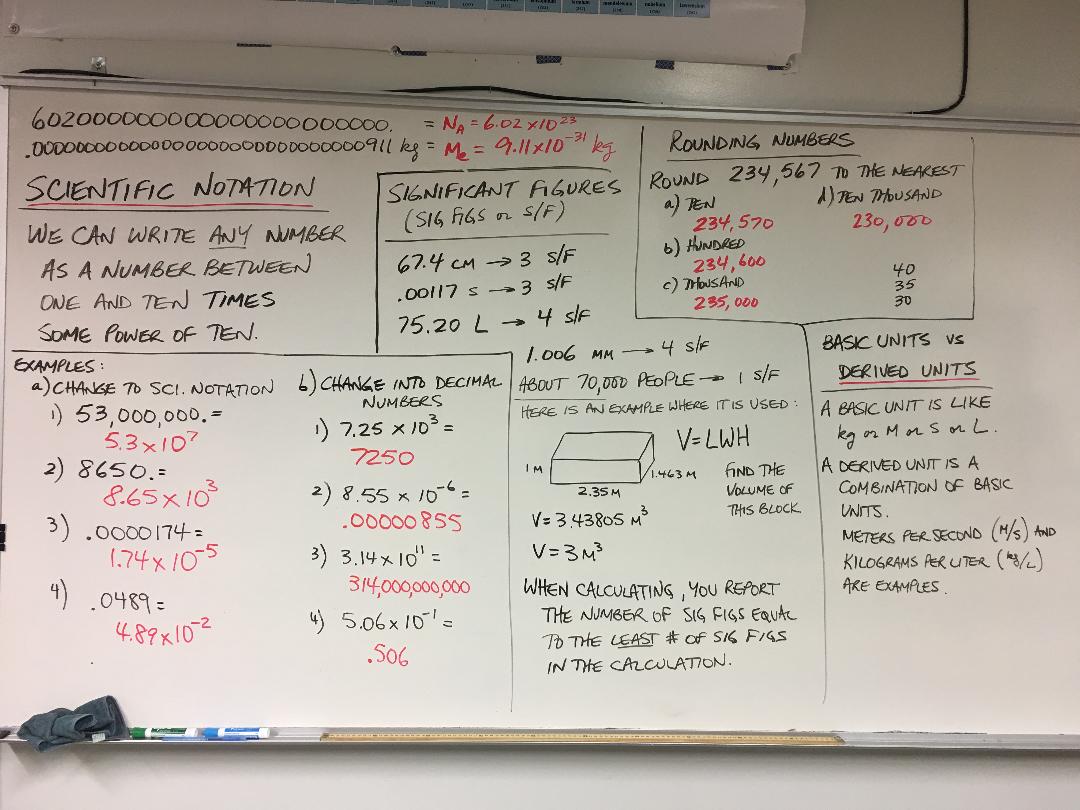 602000000000000000000000. = NA = 6.02 x 10²³
.000000000000000000000000000000911 kg = Me = 9.11 x 10⁻³¹ kg
SCIENTIFIC NOTATION
WE CAN WRITE ANY NUMBER
AS A NUMBER BETWEEN
ONE AND TEN TIMES
SOME POWER OF TEN.
SIGNIFICANT FIGURES
(SIG FIGS or S/F)
67.4 CM → 3 S/F
.00117 S → 3 S/F
75.20 L → 4 S/F
1.006 MM → 4 S/F
ABOUT 70,000 PEOPLE → 1 S/F
HERE IS AN EXAMPLE WHERE IT IS USED:
V=LWH
1 M
1.463 M
2.35 M
FIND THE
VOLUME OF
THIS BLOCK
V= 3.43805 M³
V= 3 M³
WHEN CALCULATING, YOU REPORT
THE NUMBER OF SIG FIGS EQUAL
TO THE LEAST # OF SIG FIGS
IN THE CALCULATION.
ROUNDING NUMBERS
ROUND 234,567 TO THE NEAREST
a) TEN
234,570
b) HUNDRED
234,600
c) THOUSAND
235,000
d) TEN THOUSAND
230,000
40
35
30
EXAMPLES:
a) CHANGE TO SCI. NOTATION
1) 53,000,000. =
5.3 x 10⁷
2) 8650. =
8.65 x 10³
3) .0000174 =
1.74 x 10⁻⁵
4) .0489 =
4.89 x 10⁻²
b) CHANGE INTO DECIMAL
NUMBERS
1) 7.25 x 10³ =
7250
2) 8.55 x 10⁻⁶ =
.00000855
3) 3.14 x 10¹¹ =
314,000,000,000
4) 5.06 x 10⁻¹ =
.506
BASIC UNITS VS
DERIVED UNITS
A BASIC UNIT IS LIKE
kg or M or S or L.
A DERIVED UNIT IS A
COMBINATION OF BASIC
UNITS.
METERS PER SECOND (M/S) AND
KILOGRAMS PER LITER (kg/L)
ARE EXAMPLES.